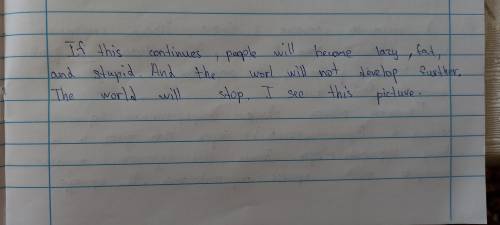 If this continues, people will become lazy, fat,
and stupid. And the worl will not develop further.
The world will stop. I see this picture.